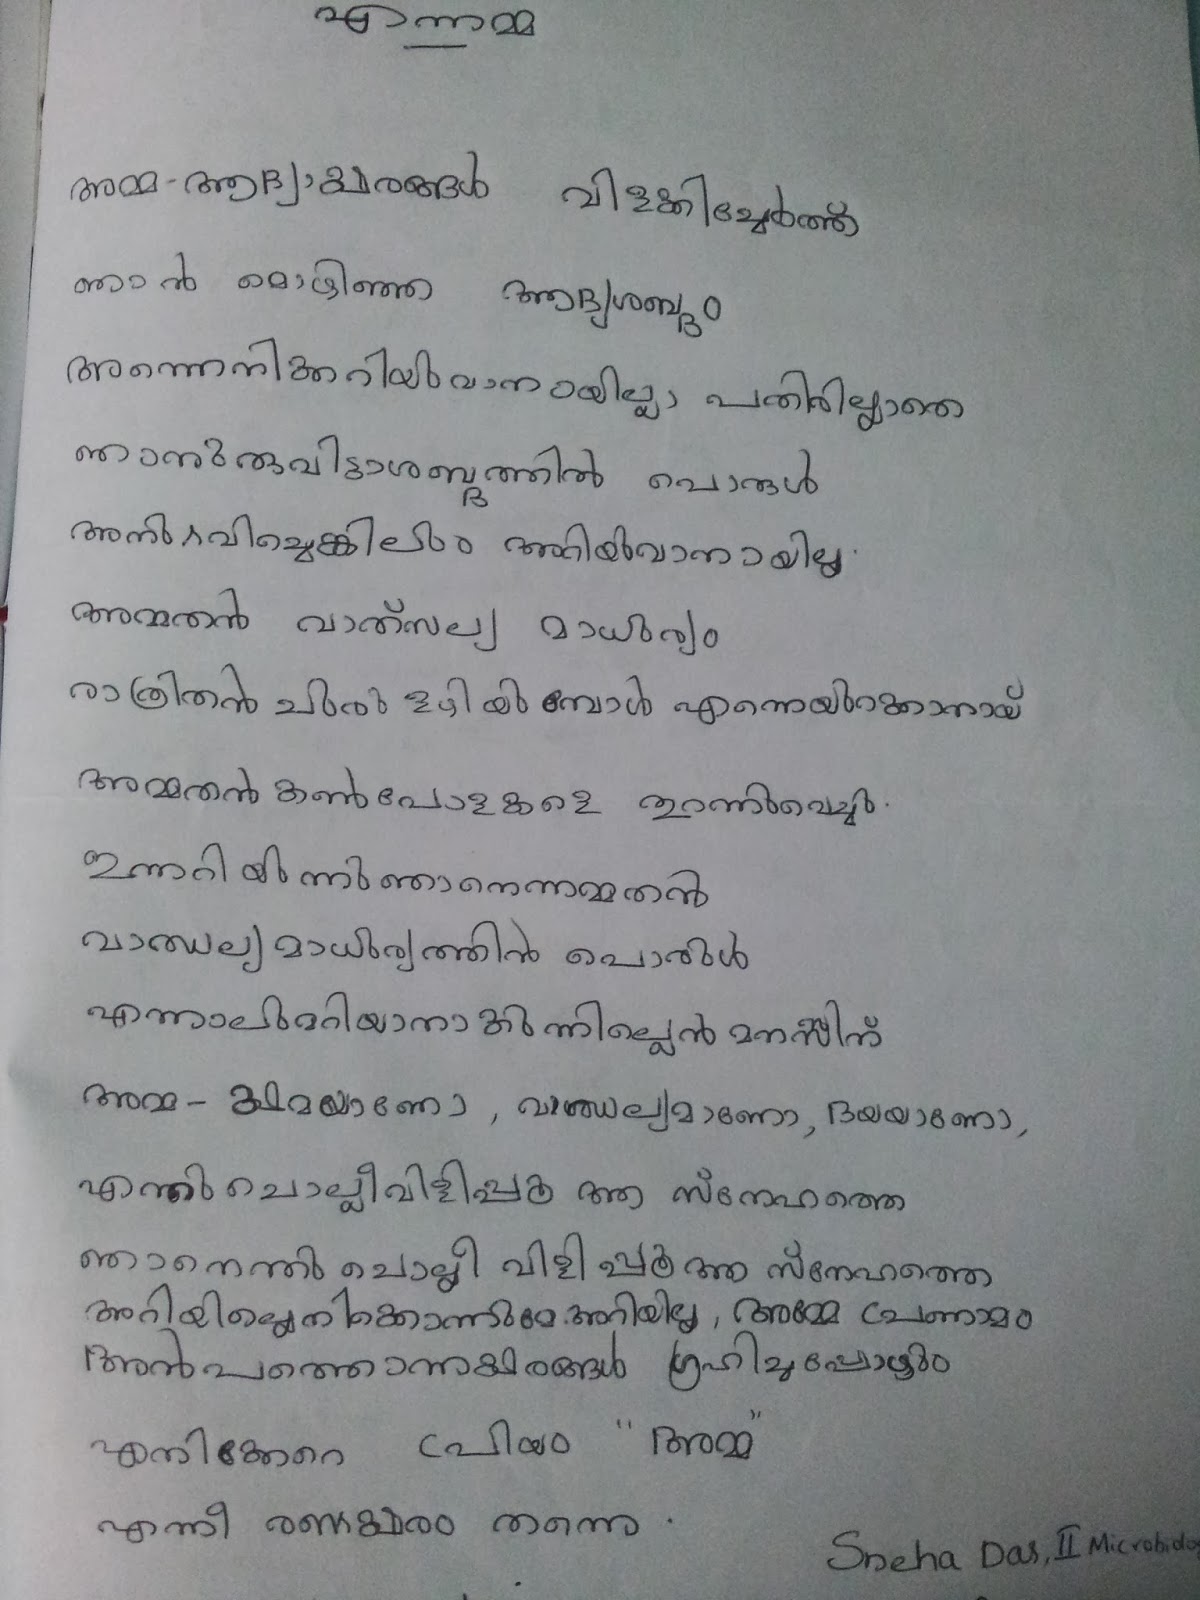 എന്നമ്മ
അമ്മ - ആദ്യാക്ഷരങ്ങൾ വിളക്കിച്ചേർത്ത്
ഞാൻ മൊഴിഞ്ഞ ആദ്യശബ്ദം
അന്നെനിക്കറിയുവാനായില്ലാ പതിരില്ലാതെ
ഞാനുരുവിട്ടാശബ്ദത്തിൽ പൊരുൾ
അനുഭവിച്ചെങ്കിലും അറിയുവാനായില്ല.
അമ്മതൻ വാത്സല്യ മാധുര്യം
രാത്രിതൻ ചുരുളഴിയുമ്പോൾ എന്നെയുറക്കാനായ്
അമ്മതൻ കൺപോളകളെ തുറന്നുവെച്ചു.
ഇന്നറിയുന്നുഞാനെന്നമ്മതൻ
വാത്സല്യമാധുര്യത്തിൻ പൊരുൾ
എന്നാലുമറിയാനാകുന്നില്ലെൻ മനസ്സിന്
അമ്മ - ക്ഷമയാണോ, വാത്സല്യമാണോ, ദയയാണോ,
എന്തു ചൊല്ലീവിളിപ്പൂ ആ സ്നേഹത്തെ
ഞാനെന്തു ചൊല്ലീ വിളിപ്പൂ ആ സ്നേഹത്തെ
അറിയില്ലെനിക്കൊന്നുമേ.അറിയില്ല, അമ്മേ പ്രണാമം
അൻപത്തൊന്നക്ഷരങ്ങൾ ഗ്രഹിച്ചപ്പോഴും
എനിക്കേറെ പ്രിയം "അമ്മ"
എന്നീ രണ്ടക്ഷരം തന്നെ.
Sneha Das, II Microbiolo